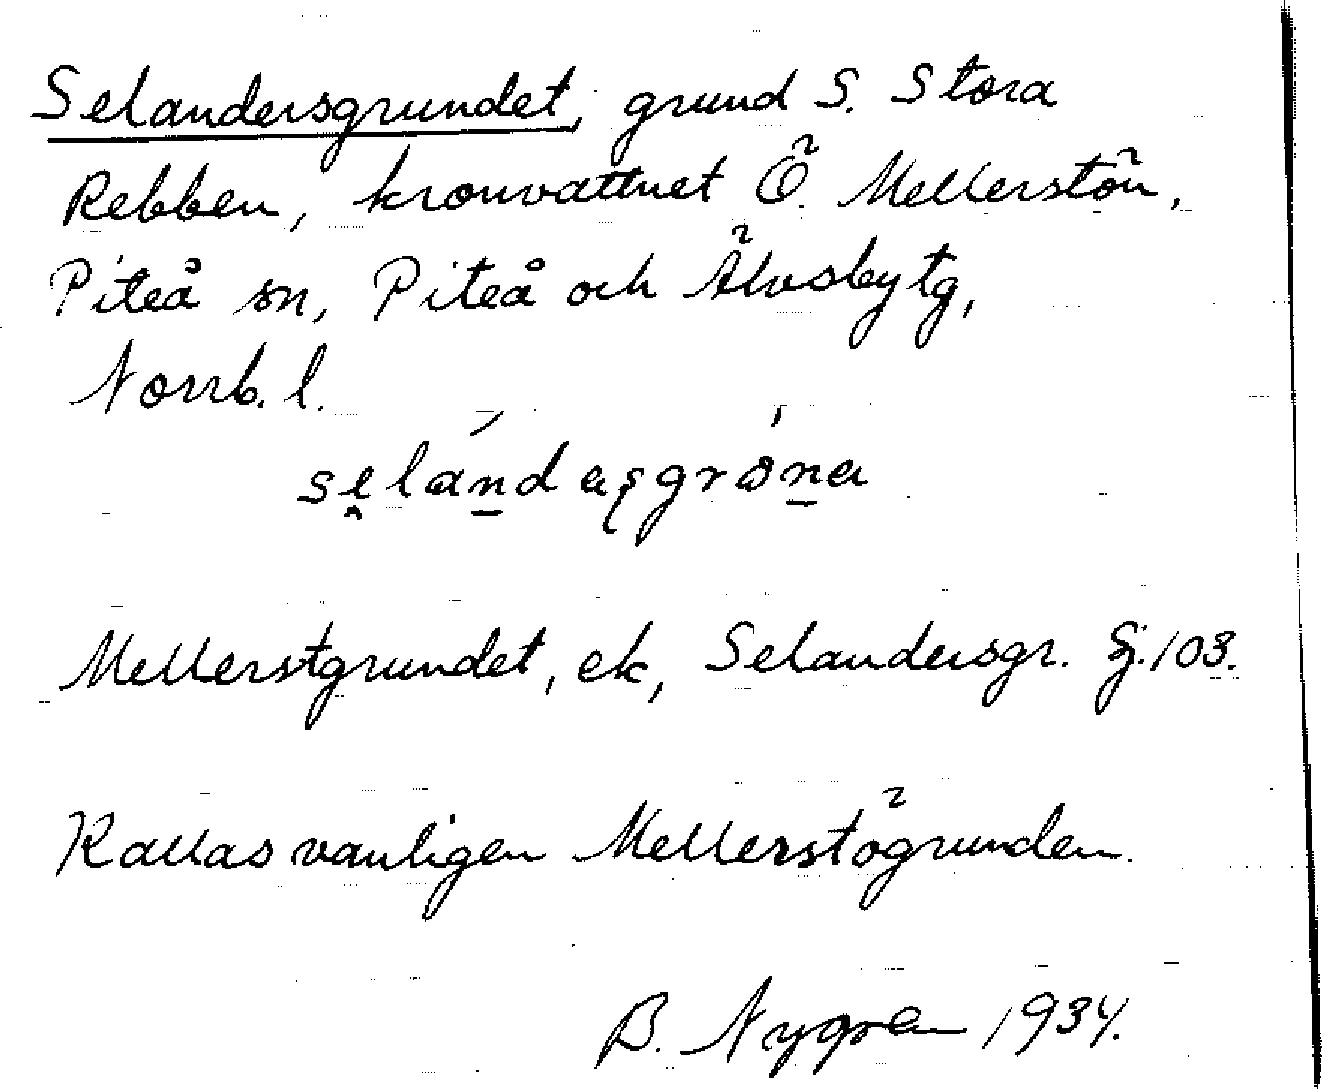 Selandersgrundet, grund S. Stora
Rebben, kronvattnet Ö. Mellerstön,
Piteå sn, Piteå och Älvsby tg,
Norrb. l.
selandasgrona
Mellerstgrundet, ek, Selandersgr. Sj. 103.
Kallas vanligen Mellerstögrunden.
B. Nygren 1934.